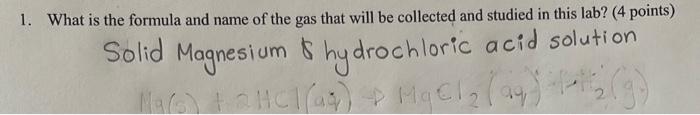 1. What is the formula and name of the gas that will be collected and studied in this lab? (4 points)
Solid Magnesium & hydrochloric acid solution
Mg(s) + 2HCl(aq) → MgCl₂(aq) + H₂(g)